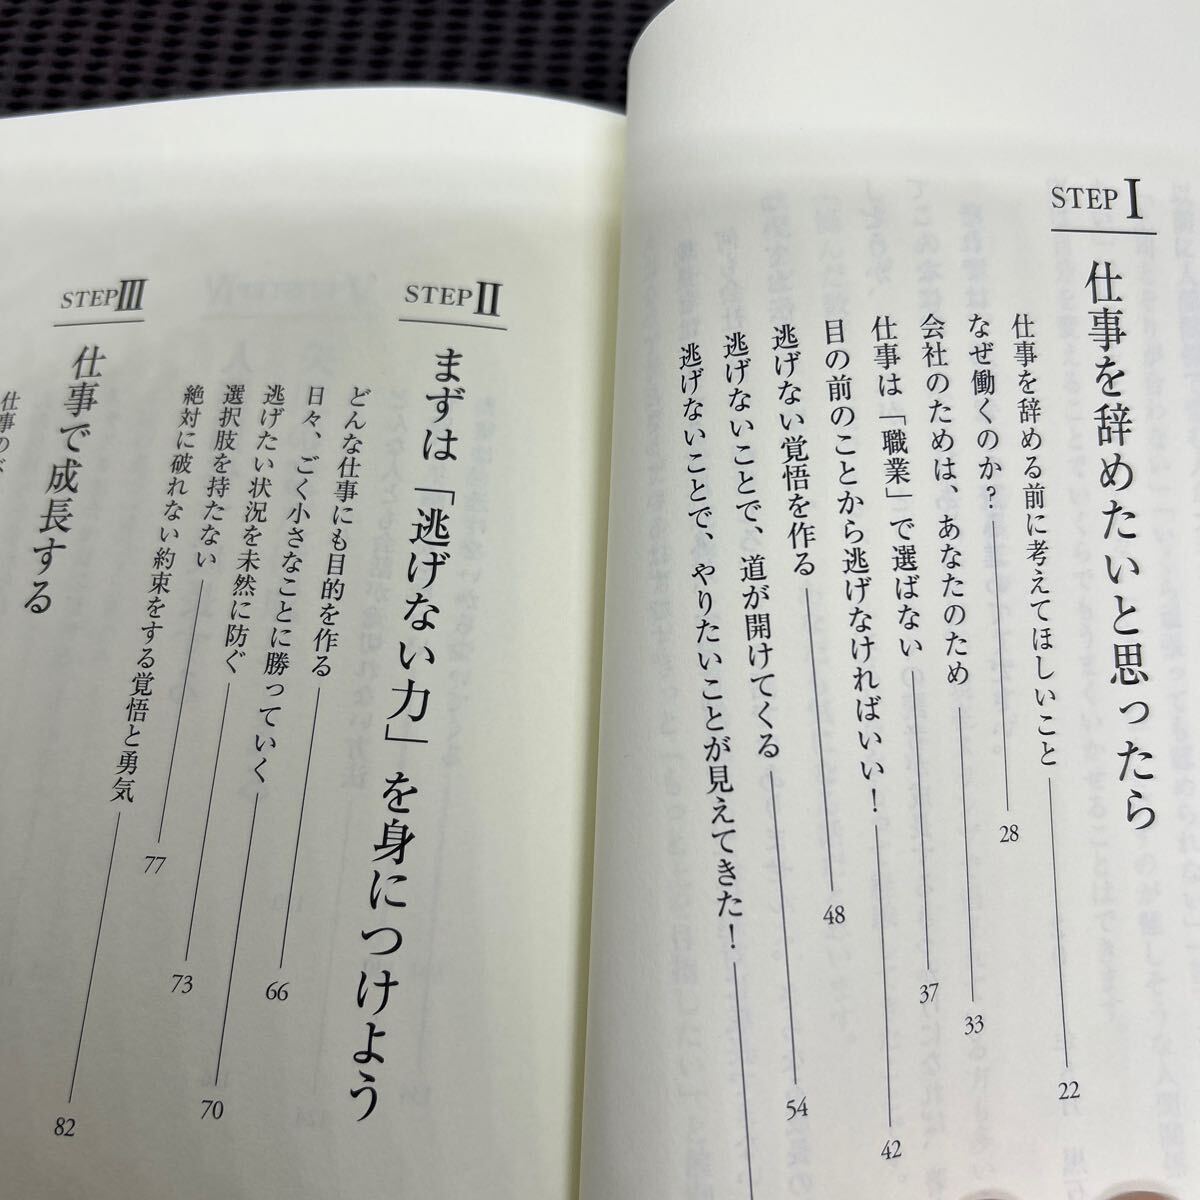 STEP I
仕事を辞めたいと思ったら
仕事を辞める前に考えてほしいこと 22
なぜ働くのか? 28
会社のためは、あなたのため 33
仕事は「職業」で選ばない 37
目の前のことから逃げなければいい! 42
逃げない覚悟を作る 48
逃げないことで、道が開けてくる 54
逃げないことで、やりたいことが見えてきた!
STEP II
まずは「逃げない力」を身につけよう
どんな仕事にも目的を作る 66
日々、ごく小さなことに勝っていく 70
逃げたい状況を未然に防ぐ 73
選択肢を持たない 77
絶対に破れない約束をする覚悟と勇気 82
STEP III
仕事で成長する
仕事の